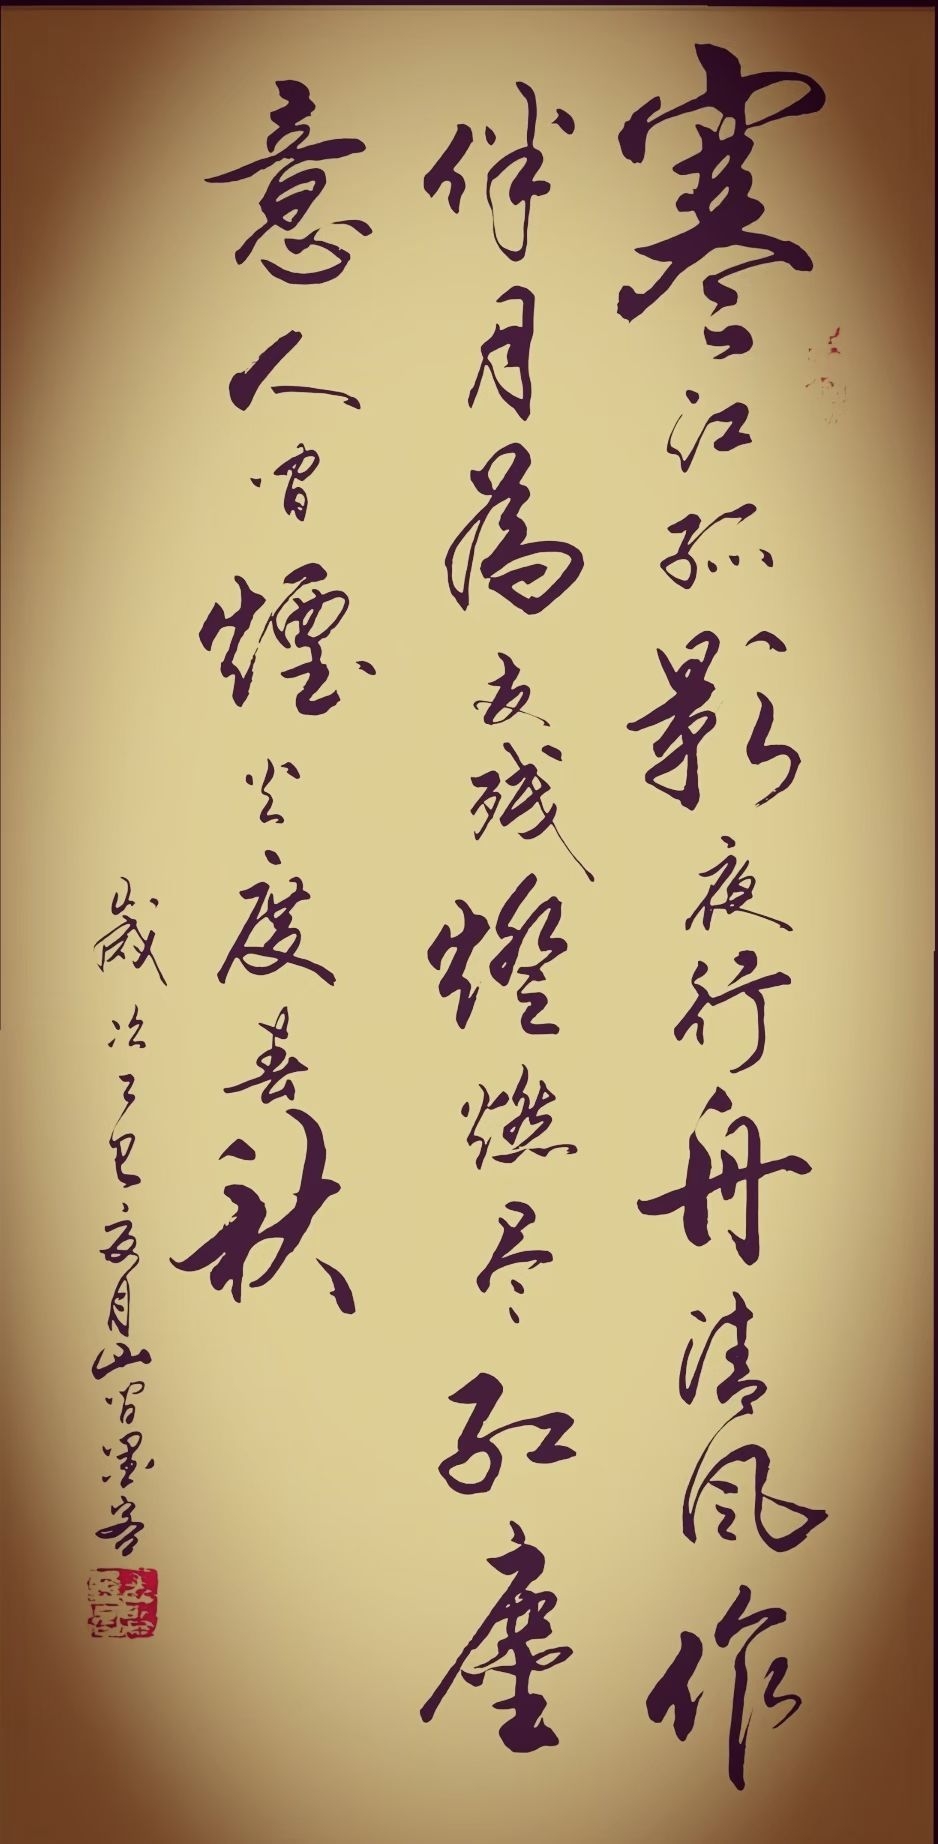 寒江孤影夜行舟清风作
伴月为友残燈燃尽红塵
意人间煙火度春秋
歲次乙巳夏月山间墨客